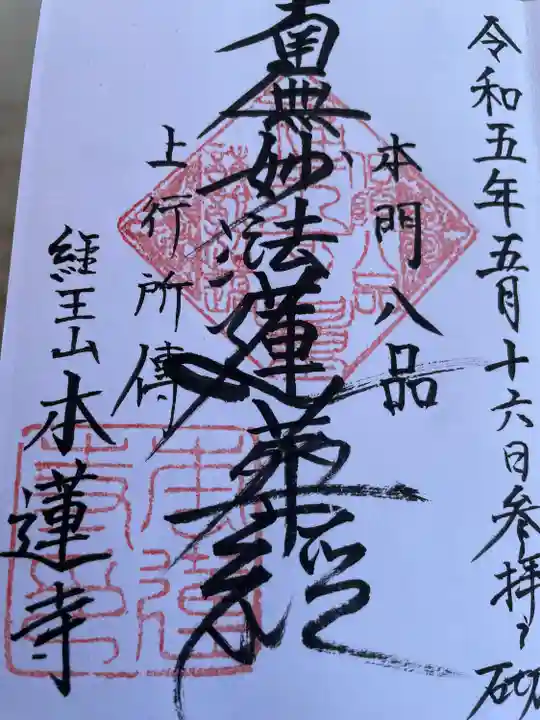 令和五年五月十六日参拝之砌
本門八品
南無妙法蓮華経
上行所傳
経王山本蓮寺